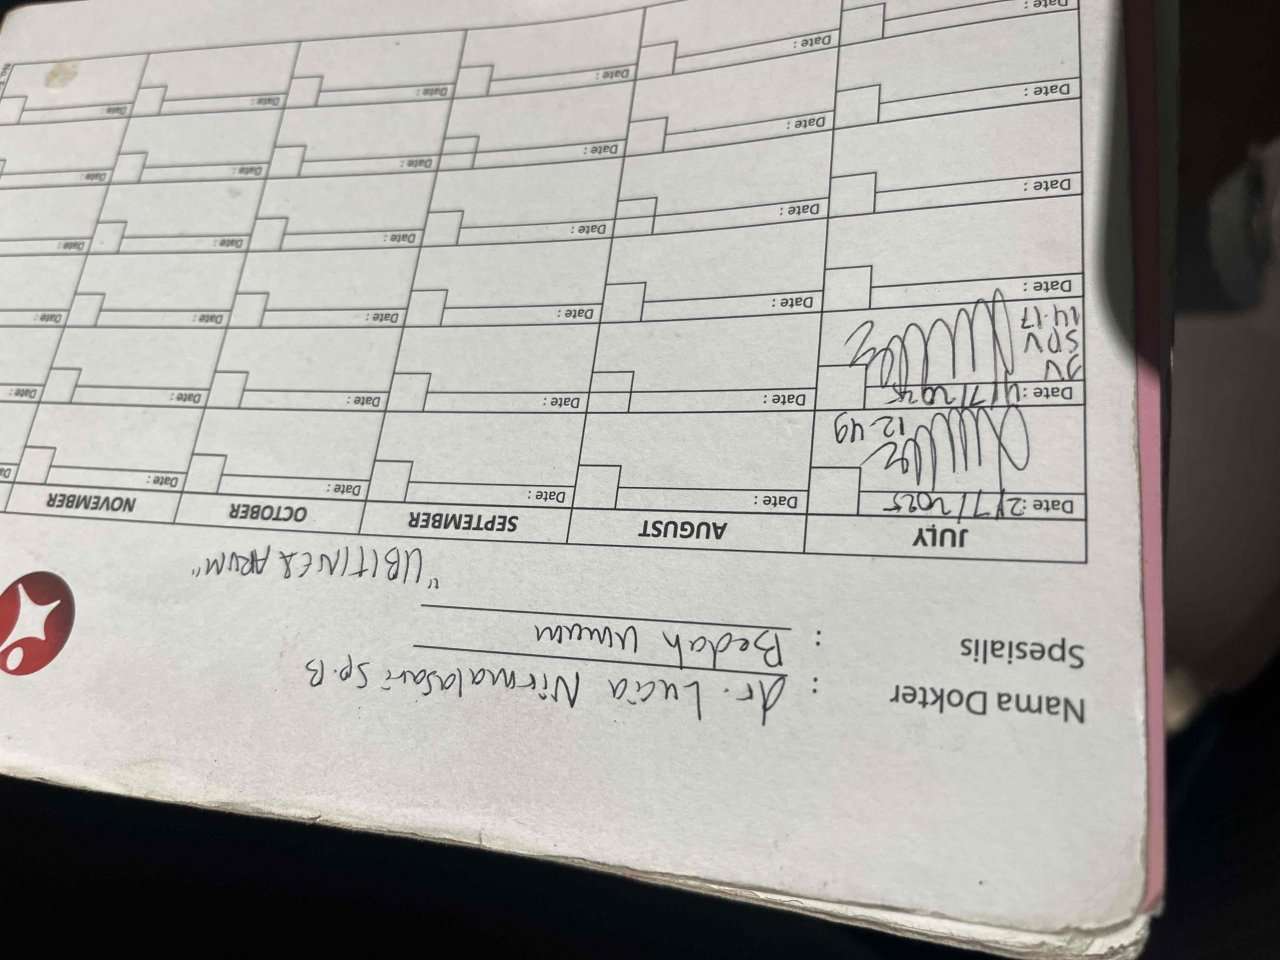 Nama Dokter : dr. Lucia Nirmalasari Sp.B
Spesialis : Bedah Umum
"UBITINEX ARUM"
JULY AUGUST SEPTEMBER OCTOBER NOVEMBER
Date : 2/7/2025 Date : Date : Date : Date : Da
12.49
Date : 4/7/2025 Date : Date : Date : Date : Date :
JV
SPV
14.17
Date : Date : Date : Date : Date : Date :
Date : Date : Date : Date : Date : Date :
Date : Date : Date : Date : Date : Date :
Date : Date : Date : Date : Date :
Date :